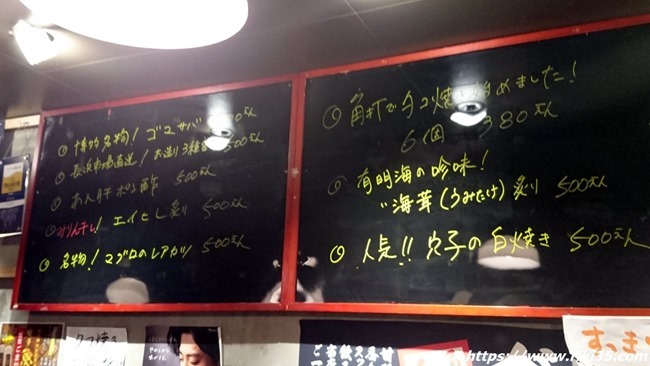 博多名物！ゴマサバ 500えん
長浜市場直送！お造り3種盛 500えん
あん肝ポン酢 500えん
みりん干し！エイヒレ炙り 500えん
名物！マグロのレアカツ 500えん
角打でタコ焼き始めました！
6個 380えん
有明海の珍味！
"海茸(うみたけ)炙り 500えん
人気!!穴子の白焼き 500えん
すっき
https://www.
35.com